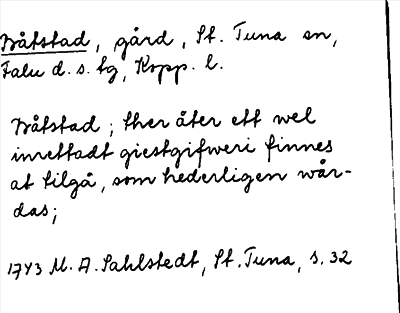 Båtstad, gård, St. Tuna sn,
Falu d. s. fg, Kopp. l.
Båtstad; ther åter ett wel
inrettadt giestgifweri finnes
at tilgå, som hederligen wår-
das;
1743 M. A. Sahlstedt, St. Tuna, s. 32